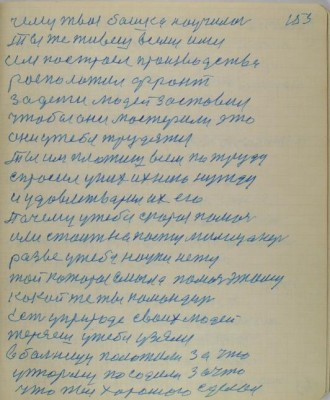 чему твоя башка научилась 183
Ты же живеш всеми ими
им построел производства
росположил фронт
за дети людей заставил
чтобы они мастерили это
они утебя трудятся
Ты им платиш всем по труду
спросил уних ихнюю нужду
и удовлетварил их его
Почему утебя скорая помощ
или стоит на посту милицанер
разве утебя науки нету
той которая смогла помоч этому
какой же ты командир
Есть уприроде своих людей
теряеш утебя узяли
в больницу положили за что
утюрму посодели за что
что ты хорошого сделал